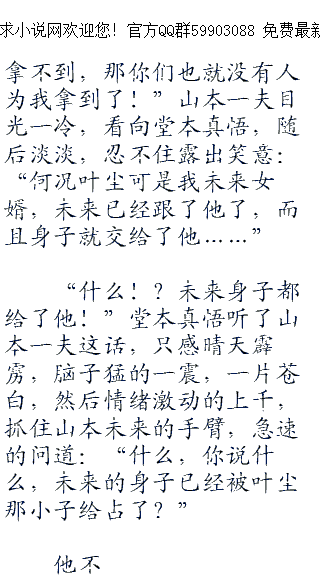 求小说网欢迎您！官方QQ群59903088 免费最新
拿不到，那你们也就没有人
为我拿到了！”山本一夫目
光一冷，看向堂本真悟，随
后淡淡，忍不住露出笑意：
“何况叶尘可是我未来女
婿，未来已经跟了他了，而
且身子就交给了他……”
“什么！？未来身子都
给了他！”堂本真悟听了山
本一夫这话，只感晴天霹
雳，脑子猛的一震，一片苍
白，然后情绪激动的上千，
抓住山本未来的手臂，急速
的问道：“什么，你说什
么，未来的身子已经被叶尘
那小子给占了？”
他不